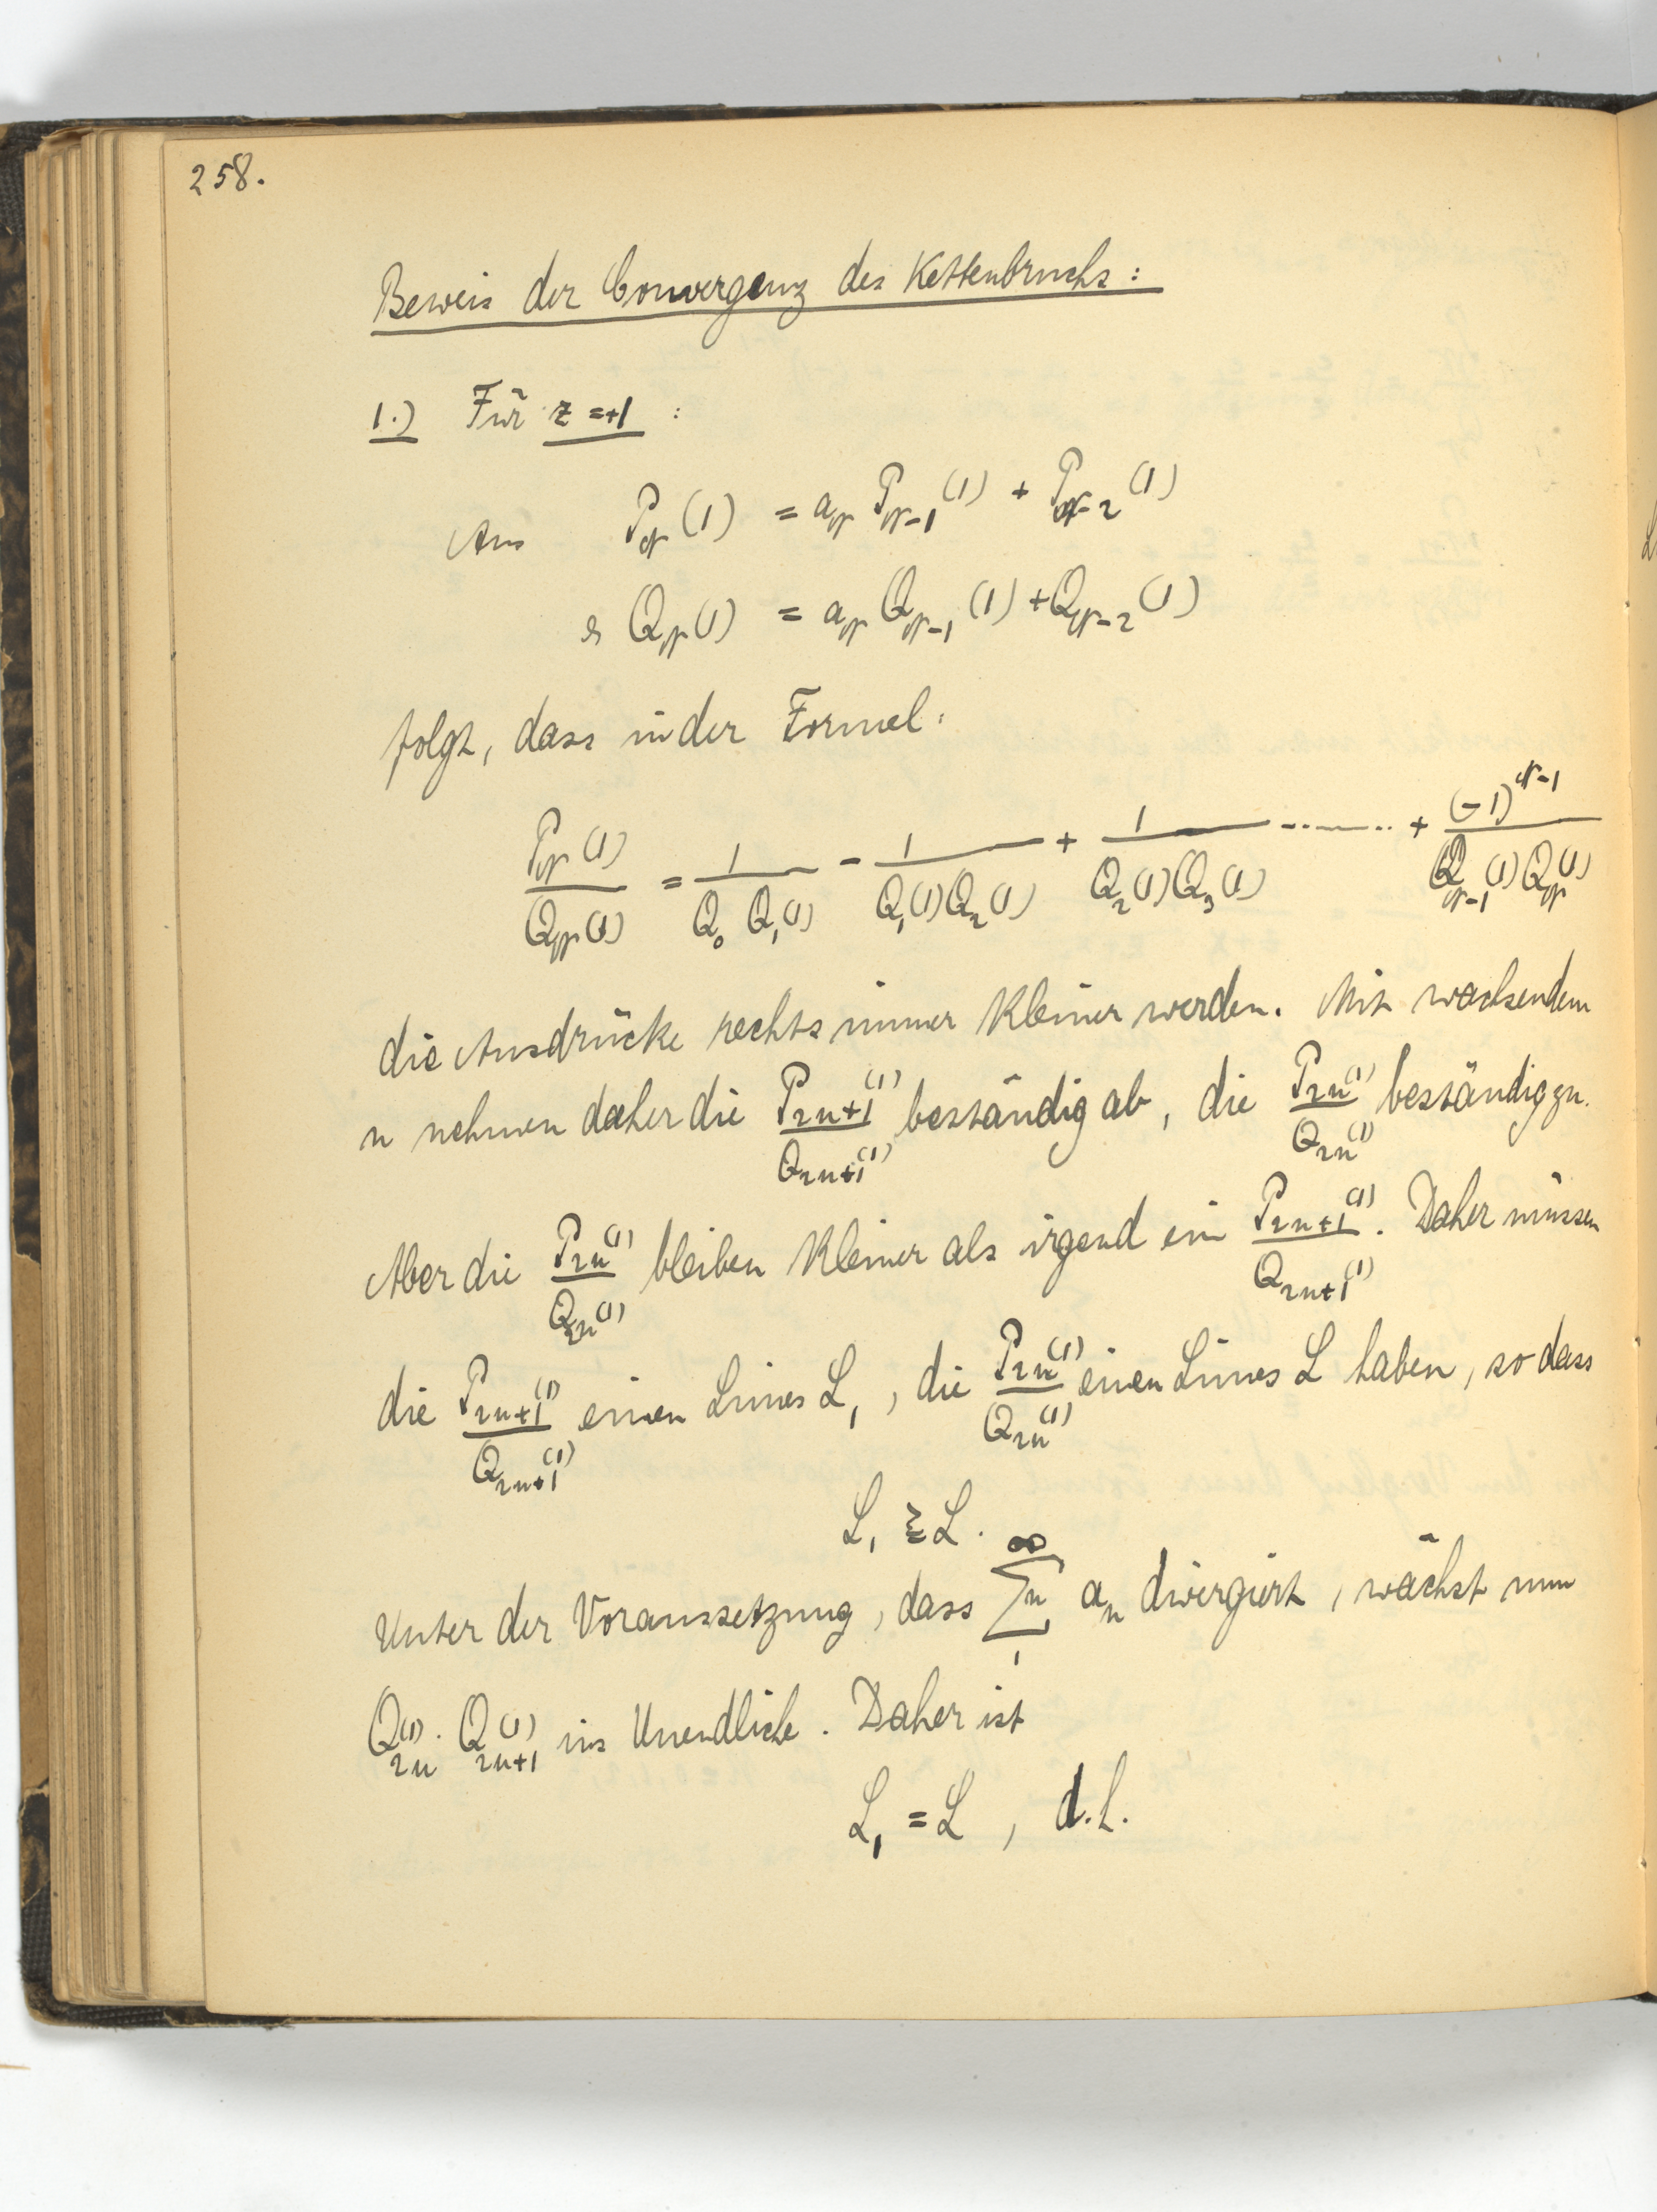 258.
Beweis der Convergenz des Kettenbruchs:
1.) Für z = +1 :
Aus P_r(1) = a_r P_{r-1}(1) + P_{r-2}(1)
& Q_r(1) = a_r Q_{r-1}(1) + Q_{r-2}(1)
folgt, dass in der Formel:
P_r(1)/Q_r(1) = 1/(Q_0 Q_1(1)) - 1/(Q_1(1) Q_2(1)) + 1/(Q_2(1) Q_3(1)) -------- + (-1)^{r-1}/(Q_{r-1}(1) Q_r(1))
die Ausdrücke rechts immer kleiner werden. Mit wachsendem
n nehmen daher die P_{2n+1}(1)/Q_{2n+1}(1) beständig ab, die P_{2n}(1)/Q_{2n}(1) beständig zu.
Aber die P_{2n}(1)/Q_{2n}(1) bleiben kleiner als irgend ein P_{2n+1}(1)/Q_{2n+1}(1). Daher müssen
die P_{2n+1}(1)/Q_{2n+1}(1) einen Limes L_1, die P_{2n}(1)/Q_{2n}(1) einen Limes L haben, so dass
L_1 ≧ L.
Unter der Voraussetzung, dass ∑_1^∞ n a_n divergiert, wächst nun
Q_{2n}(1) · Q_{2n+1}(1) ins Unendliche. Daher ist
L_1 = L , d.h.